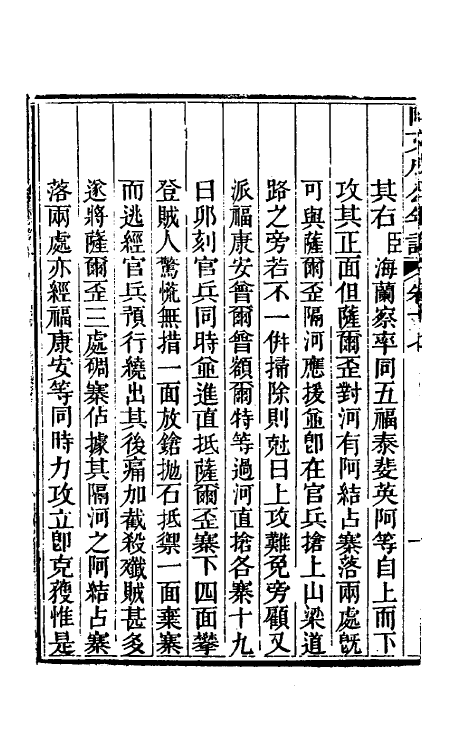 其右臣海蘭察率同五福泰斐英阿等自上而下
攻其正面但薩爾歪對河有阿結占寨落兩處既
可與薩爾歪隔河應援並卽在官兵搶上山梁道
路之旁若不一併掃除則尅日上攻難免旁顧又
派福康安曾爾曾額爾特等過河直搶各寨十九
日卯刻官兵同時並進直抵薩爾歪寨下四面攀
登賊人驚慌無措一面放鎗拋石抵禦一面棄寨
而逃經官兵預行繞出其後痛加截殺殲賊甚多
遂將薩爾歪三處碉寨佔據其隔河之阿結占寨
落兩處亦經福康安等同時力攻立卽克獲惟是